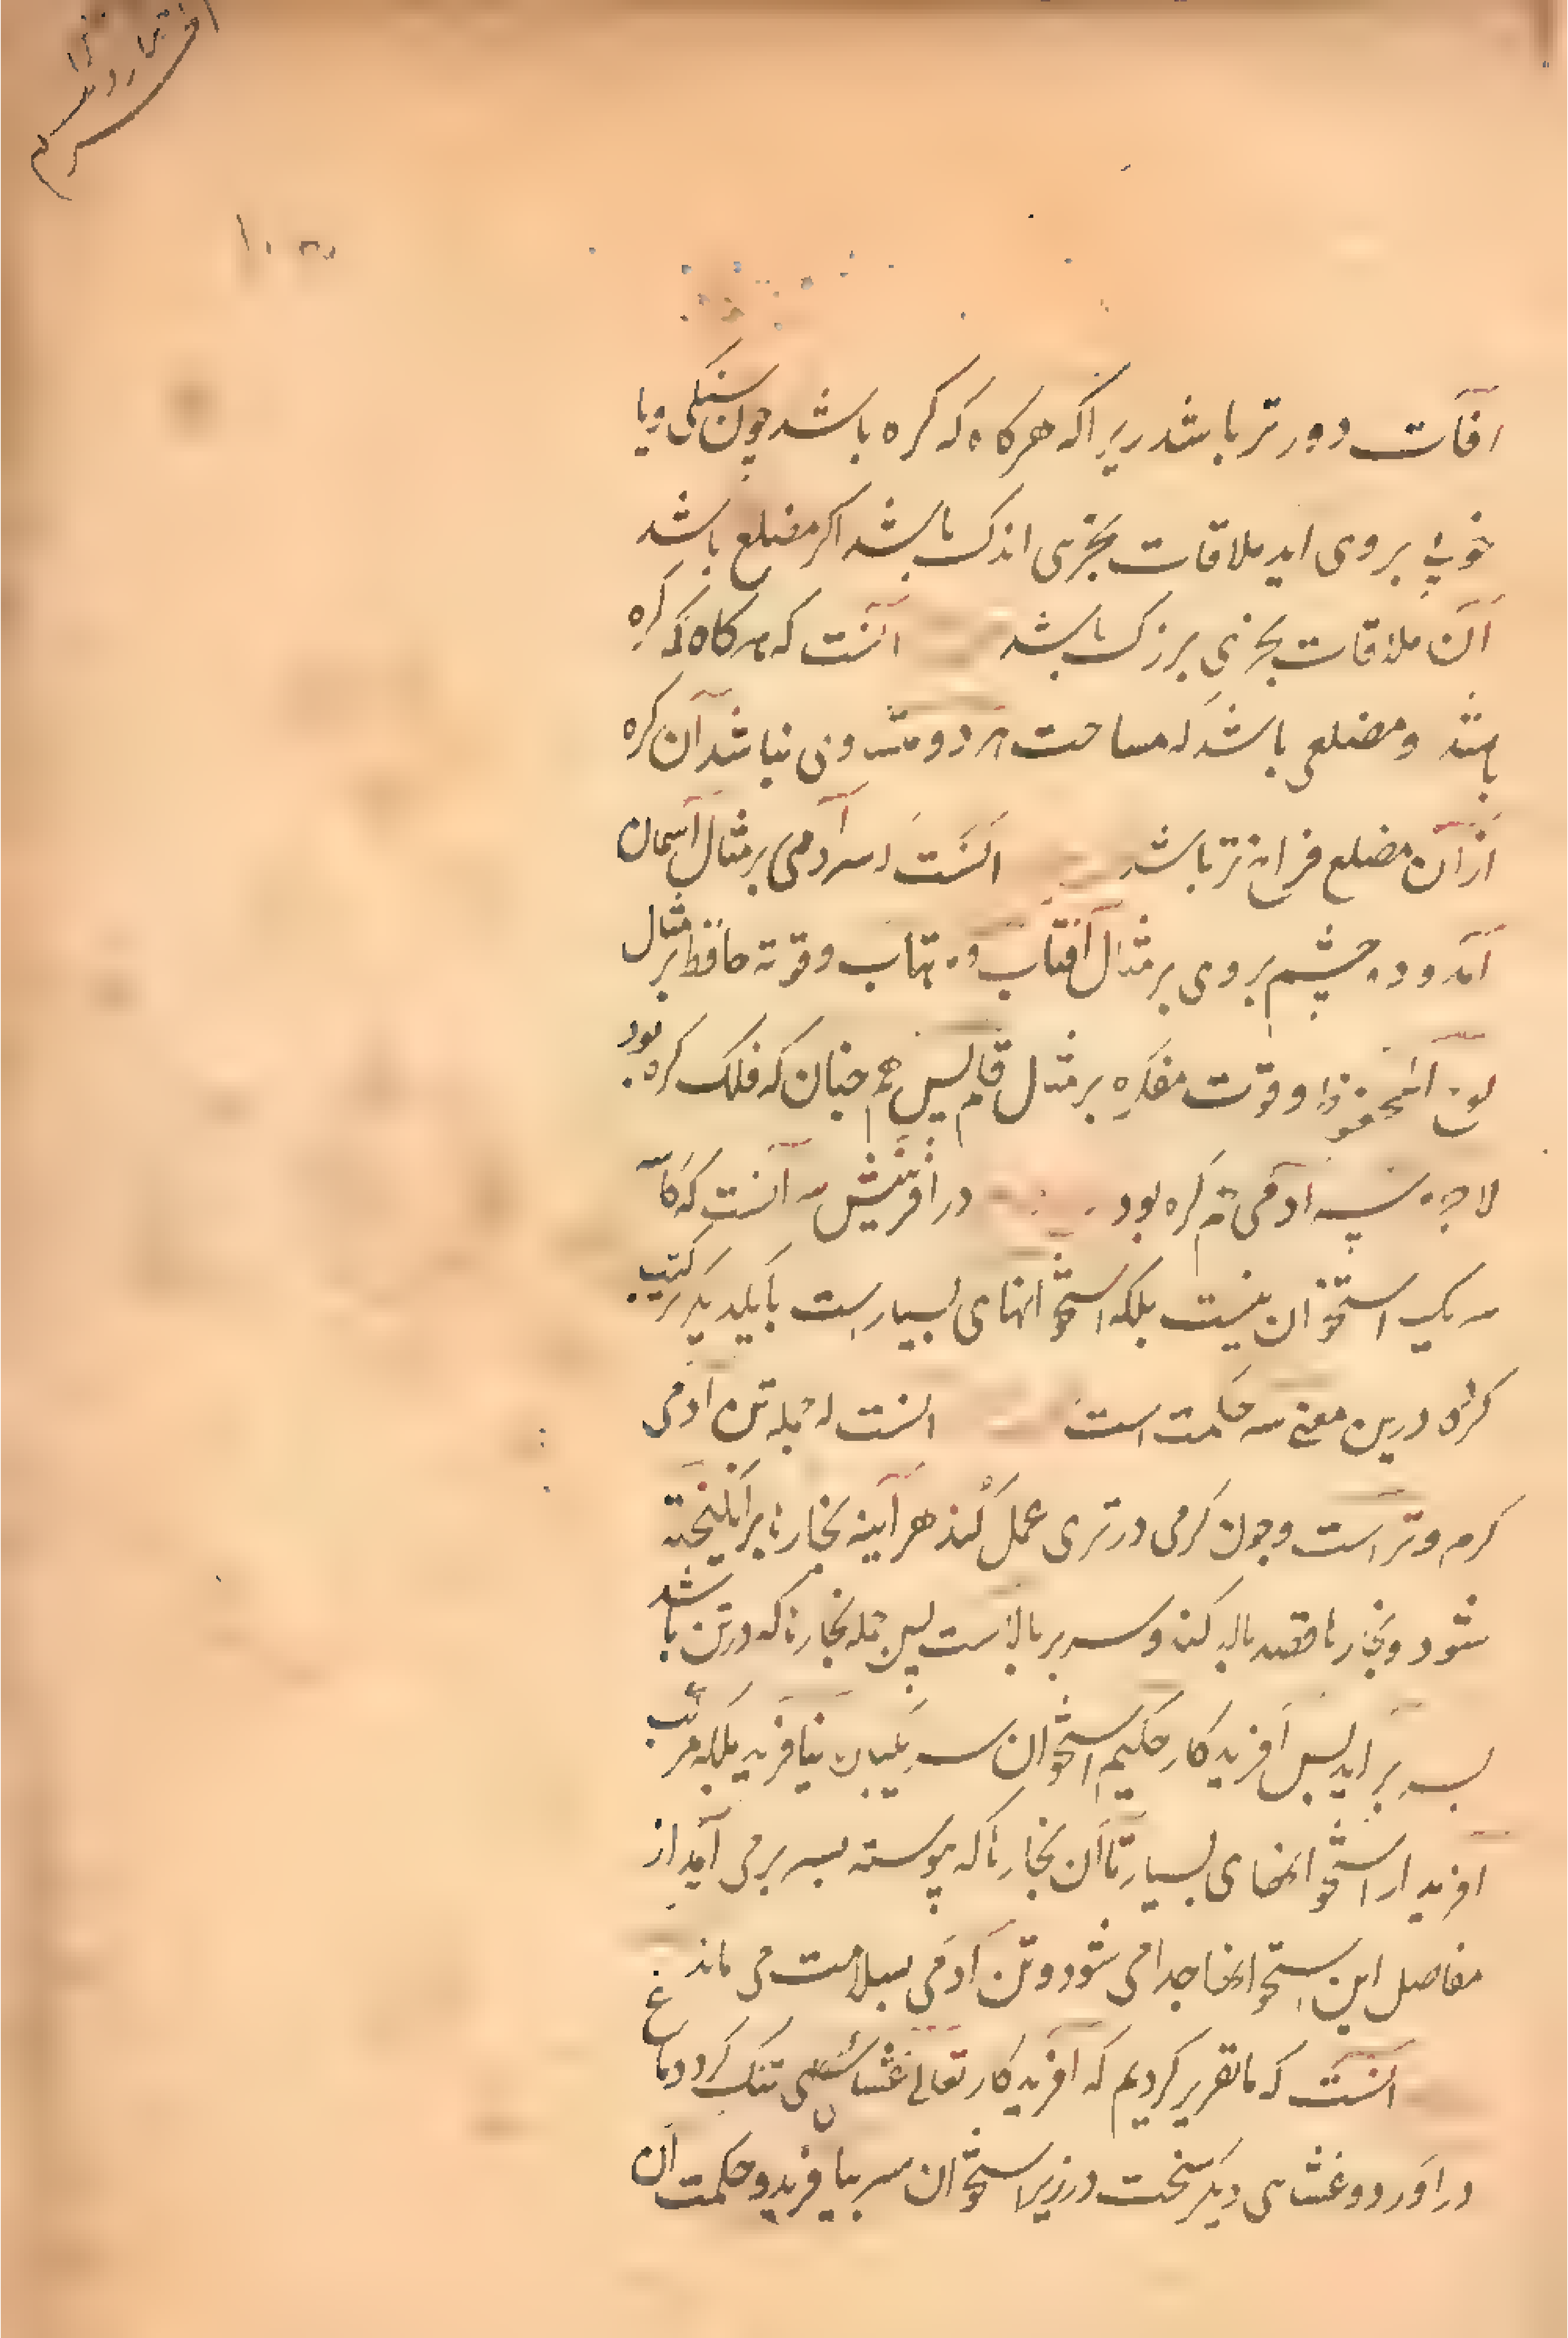 افات دورتر باشد زیرا که هرکاه که کره باشد چون سنکی ویا
خوبی بروی اید ملاقات بجزی اندک باشد اکر مضلع باشد
آن ملاقات بجزی بزرک باشد آنست که هرکاه که کره
باشد و مضلعی باشد که مساحت هر دو متساوی نباشد آن کره
ازآن مضلع فراخ تر باشد آنست که سر آدمی بر مثال آسمان
آمد و دو چشم بروی بر مثال آفتاب و مهتاب و قوة حافظ بر مثال
لوح المحفوظ و قوّت مفکره بر مثال قلم پس همچنان که فلک کره بود
لاجرم سر آدمی هم کره بود در آفرینش سر آنست که
سر یک استخوان نیست بلکه استخوانهای بسیارست با یکدیکر ترکیب
کرده درین معنی سه حکمت است آنست که جمله تن آدمی
کرم و تر است و چون کرمی در تری عمل کند هر آینه بخارها برانکیخته
شود و بخارها قصد بالا کند و سر بر بالاست پس جمله بخارها که در تن باشد
بسر بر اید پس آفریدکار حکیم استخوان سر یکسان نیافرید بلکه مرکب
افرید از استخوانهای بسیار تا آن بخارها که پیوسته بسر بر می آید از
مفاصل این استخوانها جدا می شود و تن آدمی بسلامت می ماند
آنست که ما تقریر کردیم که آفریدکار تعالی غشائی تنک کرد دماغ
دراورد و غشای دیکر سخت در زیر استخوان سر بیافرید و حکمت آن